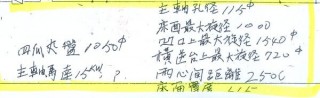 主軸孔徑 115φ
床面最大旋徑 1000
凹口上最大旋徑 1540φ
四爪夾盤 1050φ
橫送台上最大旋徑 720φ
主軸馬達 15KW ?
兩心間距離 2500
床面寬度